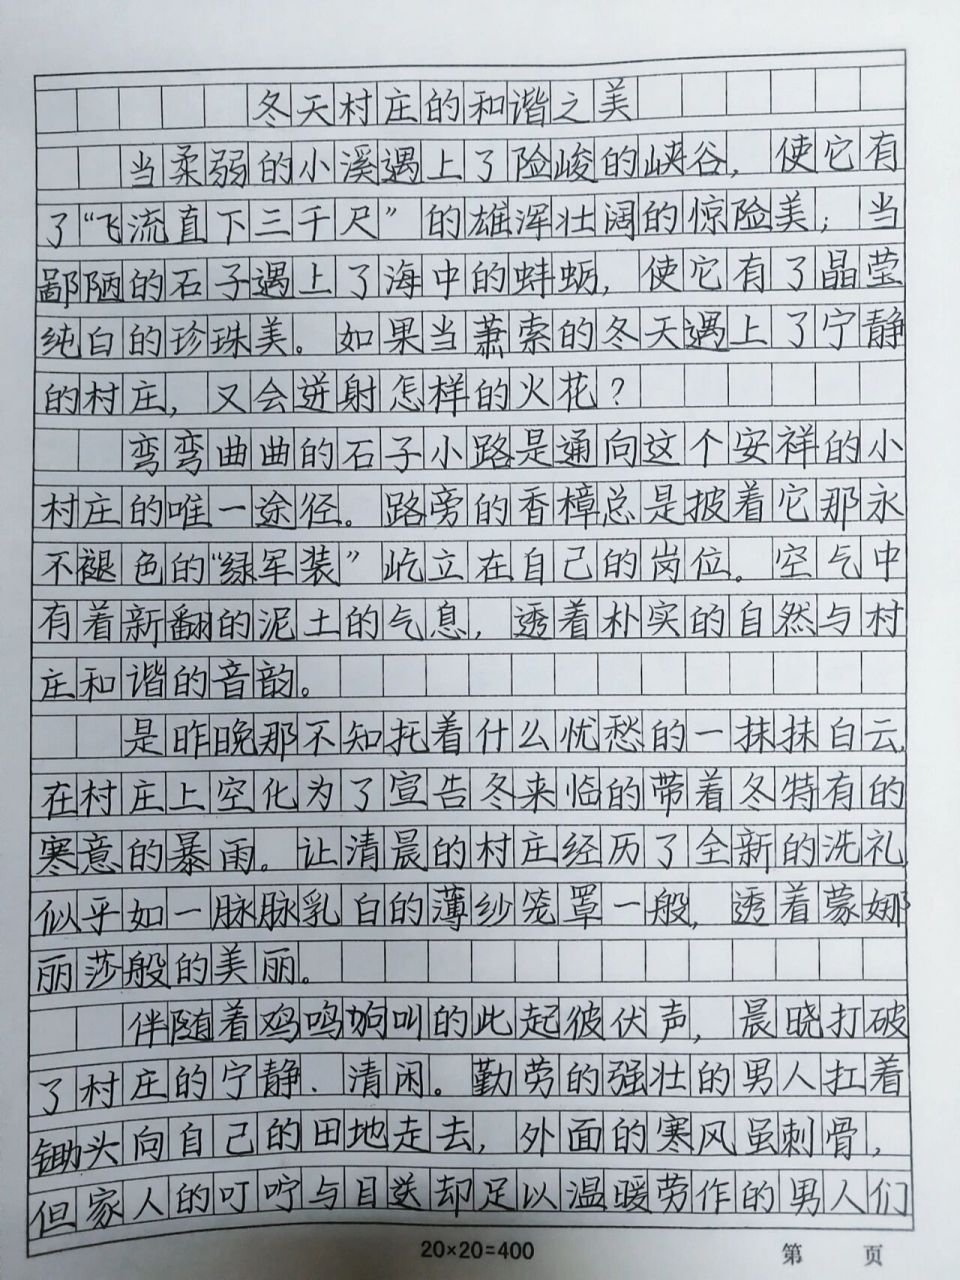 冬天村庄的和谐之美
当柔弱的小溪遇上了险峻的峡谷，使它有
了“飞流直下三千尺”的雄浑壮阔的惊险美；当
鄙陋的石子遇上了海中的蚌蛎，使它有了晶莹
纯白的珍珠美。如果当萧索的冬天遇上了宁静
的村庄，又会迸射怎样的火花？
弯弯曲曲的石子小路是通向这个安祥的小
村庄的唯一途径。路旁的香樟总是披着它那永
不褪色的“绿军装”屹立在自己的岗位。空气中
有着新翻的泥土的气息，透着朴实的自然与村
庄和谐的音韵。
是昨晚那不知托着什么忧愁的一抹抹白云，
在村庄上空化为了宣告冬来临的带着冬特有的
寒意的暴雨。让清晨的村庄经历了全新的洗礼
似乎如一脉脉乳白的薄纱笼罩一般，透着蒙娜
丽莎般的美丽。
伴随着鸡鸣狗叫的此起彼伏声，晨晓打破
了村庄的宁静、清闲。勤劳的强壮的男人扛着
锄头向自己的田地走去，外面的寒风虽刺骨，
但家人的叮咛与目送却足以温暖劳作的男人们
20×20=400
第 页